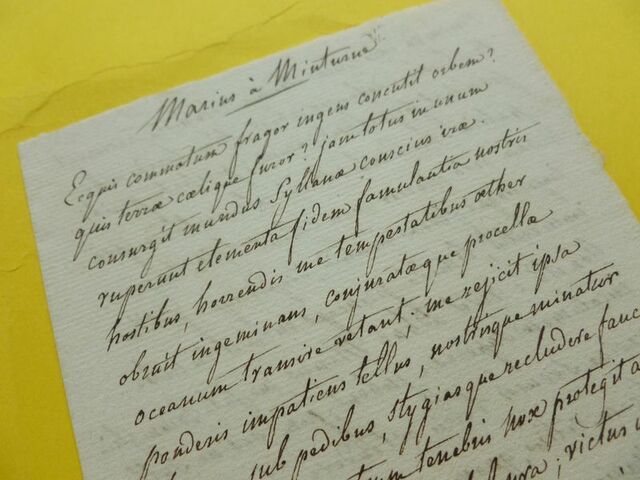 Marius à Minturne
Ecquis commotum fragor ingens concutit orbem?
quis terræ cælique furor? jam totus in unum
consurgit mundus Syllanæ conscius iræ.
ruperunt elementa fidem famulantia nostris
hostibus, horrendis me tempestatibus æther
obruit ingeminans, conjuratæque procellæ
oceanum transire vetant; me rejicit ipsa
ponderis impatiens tellus, nostrisque minatur
sub pedibus, stygiasque recludere fauc
tenebris nox protegit a
victus